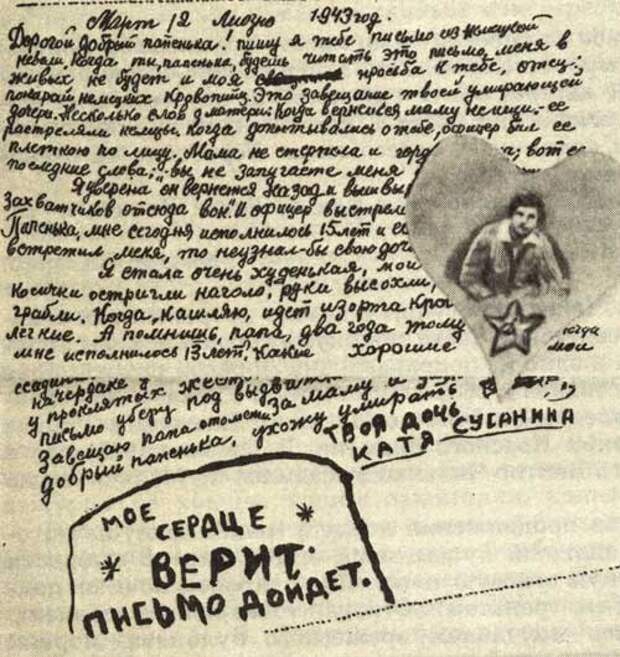 Март, 12 Лиозно 1943 год.
Дорогой добрый папенька! пишу я тебе письмо из немецкой
неволи. Когда ты, папенька, будешь читать это письмо, меня в
живых не будет и моя просьба к тебе, отец:
покарай немецких кровопийц. Это завещание твоей умирающей
дочери. Несколько слов о матери: когда вернешься маму не ищи. - ее
расстреляли немцы. Когда допытывались о тебе, офицер бил ее
плеткою по лицу. Мама не стерпела и вот ее
последние слова: "вы не запугаете меня
Я уверена он вернется назад и
захватчиков отсюда вон." И офицер
Папенька, мне сегодня исполнилось 15 лет и
встретил меня, то неузнал-бы свою
Я стала очень худенькая, мои
косички остригли наголо, руки высохли,
грабли. Когда, кашляю, идет изорта
легкие. А помнишь, папа, два года тому когда
мне исполнилось 13 лет. Какие хорошие мои
на чердаке
у проклятых
письмо уберу под
Завещаю папа отомсти за маму и
добрый папенька, ухожу умирать
ТВОЯ ДОЧЬ
КАТЯ СУСАНИНА
МОЕ
СЕРДЦЕ
ВЕРИТ.
ПИСЬМО ДОЙДЕТ.